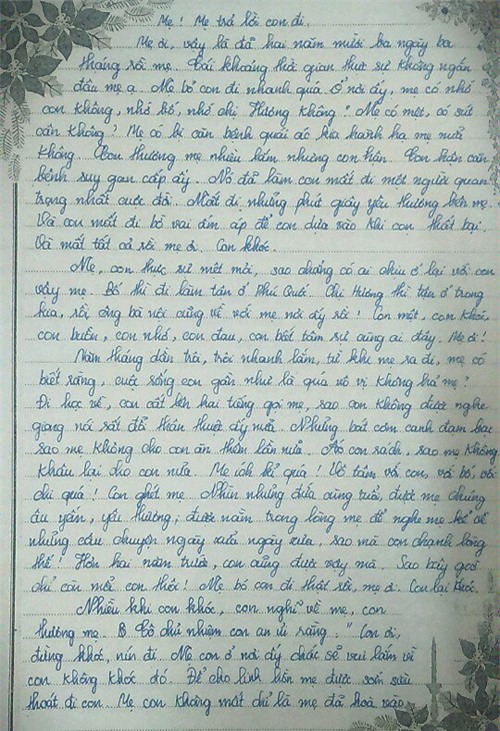 Mẹ! Mẹ trả lời con đi.
Mẹ ơi, vậy là đã hai năm mười ba ngày ba
tháng rồi mẹ. Cái khoảng thời gian thực sự không ngắn
đâu mẹ ạ. Mẹ bỏ con đi nhanh quá. Ở nơi ấy, mẹ có nhớ
con không, nhớ bố, nhớ chị Hương không? Mẹ có mệt, có sút
cân không? Mẹ có bị căn bệnh quái ác kia hành hạ mẹ nữa
không. Con thương mẹ nhiều lắm nhưng con hận. Con hận căn
bệnh suy gan cấp ấy. Nó đã làm con mất đi một người quan
trọng nhất cuộc đời. Mất đi những phút giây yêu thương bên mẹ.
Và con mất đi bờ vai ấm áp để con dựa vào khi con thất bại.
Và mất tất cả rồi mẹ ơi. Con khóc.
Mẹ, con thực sự mệt mỏi, sao chẳng có ai chịu ở lại với con
vậy mẹ. Bố thì đi làm tận ở Phú Quốc. Chị Hương thì tận ở trong
kia, rồi ông bà nội cũng về với mẹ nơi ấy rồi! Con mệt, con khóc,
con buồn, con nhớ, con đau, con biết tâm sự cùng ai đây. Mẹ ơi!
Năm tháng dần trôi, trôi nhanh lắm, từ khi mẹ ra đi, mẹ có
biết rằng, cuộc sống con gần như là quá vô vị không hả mẹ?
Đi học về, con cất lên hai tiếng gọi mẹ, sao con không được nghe
giọng nói rất đỗi thân thuộc ấy nữa. Những bát cơm canh đạm bạc
sao mẹ không cho con ăn thêm lần nữa. Áo con rách, sao mẹ không
khâu lại cho con nữa. Mẹ ích kỉ quá! Vô tâm với con, với bố, với
chị quá! Con ghét mẹ. Nhìn những đứa cùng tuổi, được mẹ chúng
âu yếm, yêu thương; được nằm trong lòng mẹ để nghe mẹ kể về
những câu chuyện ngày xửa ngày xưa, sao mà con chạnh lòng
thế! Hơn hai năm trước, con cũng được vậy mà. Sao bây giờ
chỉ còn mỗi con thôi! Mẹ bỏ con đi thật rồi, mẹ ơi. Con lại khóc.
Nhiều khi con khóc, con nghĩ về mẹ, con
thương mẹ. Cô chủ nhiệm con an ủi rằng: "Con ơi,
đừng khóc, nín đi. Mẹ con ở nơi ấy chắc sẽ vui lắm vì
con không khóc đó. Để cho linh hồn mẹ được sớm siêu
thoát đi con. Mẹ con không mất chỉ là mẹ đã hoà vào